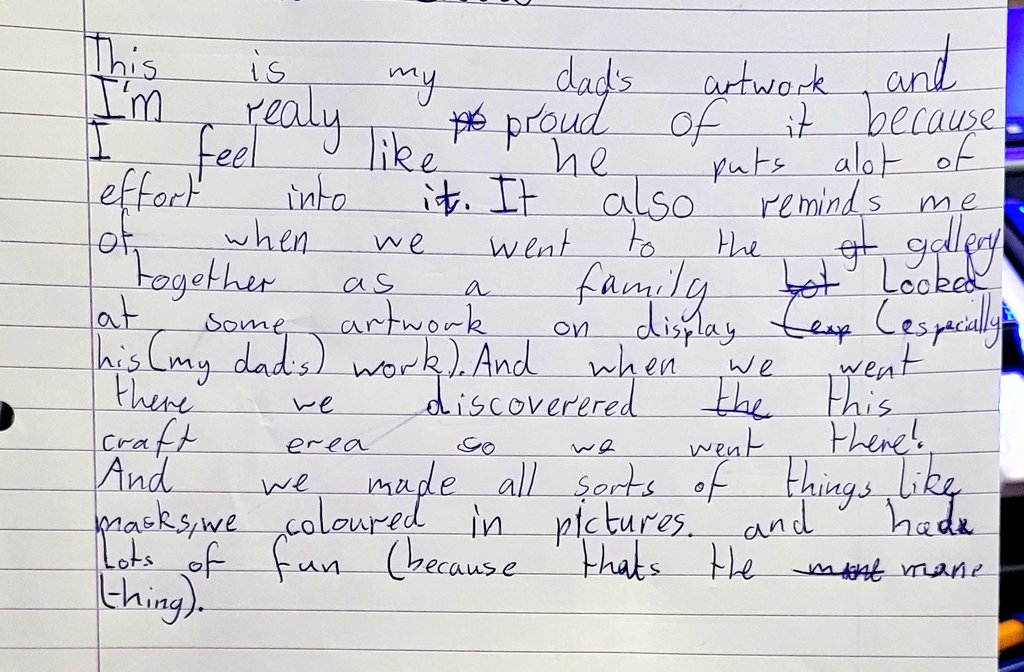 This is my dad's artwork and
I'm realy proud of it because
I feel like he puts alot of
effort into it. It also reminds me
of when we went to the gallery
together as a family looked
at some artwork on display (especially
his (my dad's) work). And when we went
there we discoverered this
craft erea so we went there!
And we made all sorts of things, like
masks, we coloured in pictures. and had
lots of fun (because thats the mane
thing).